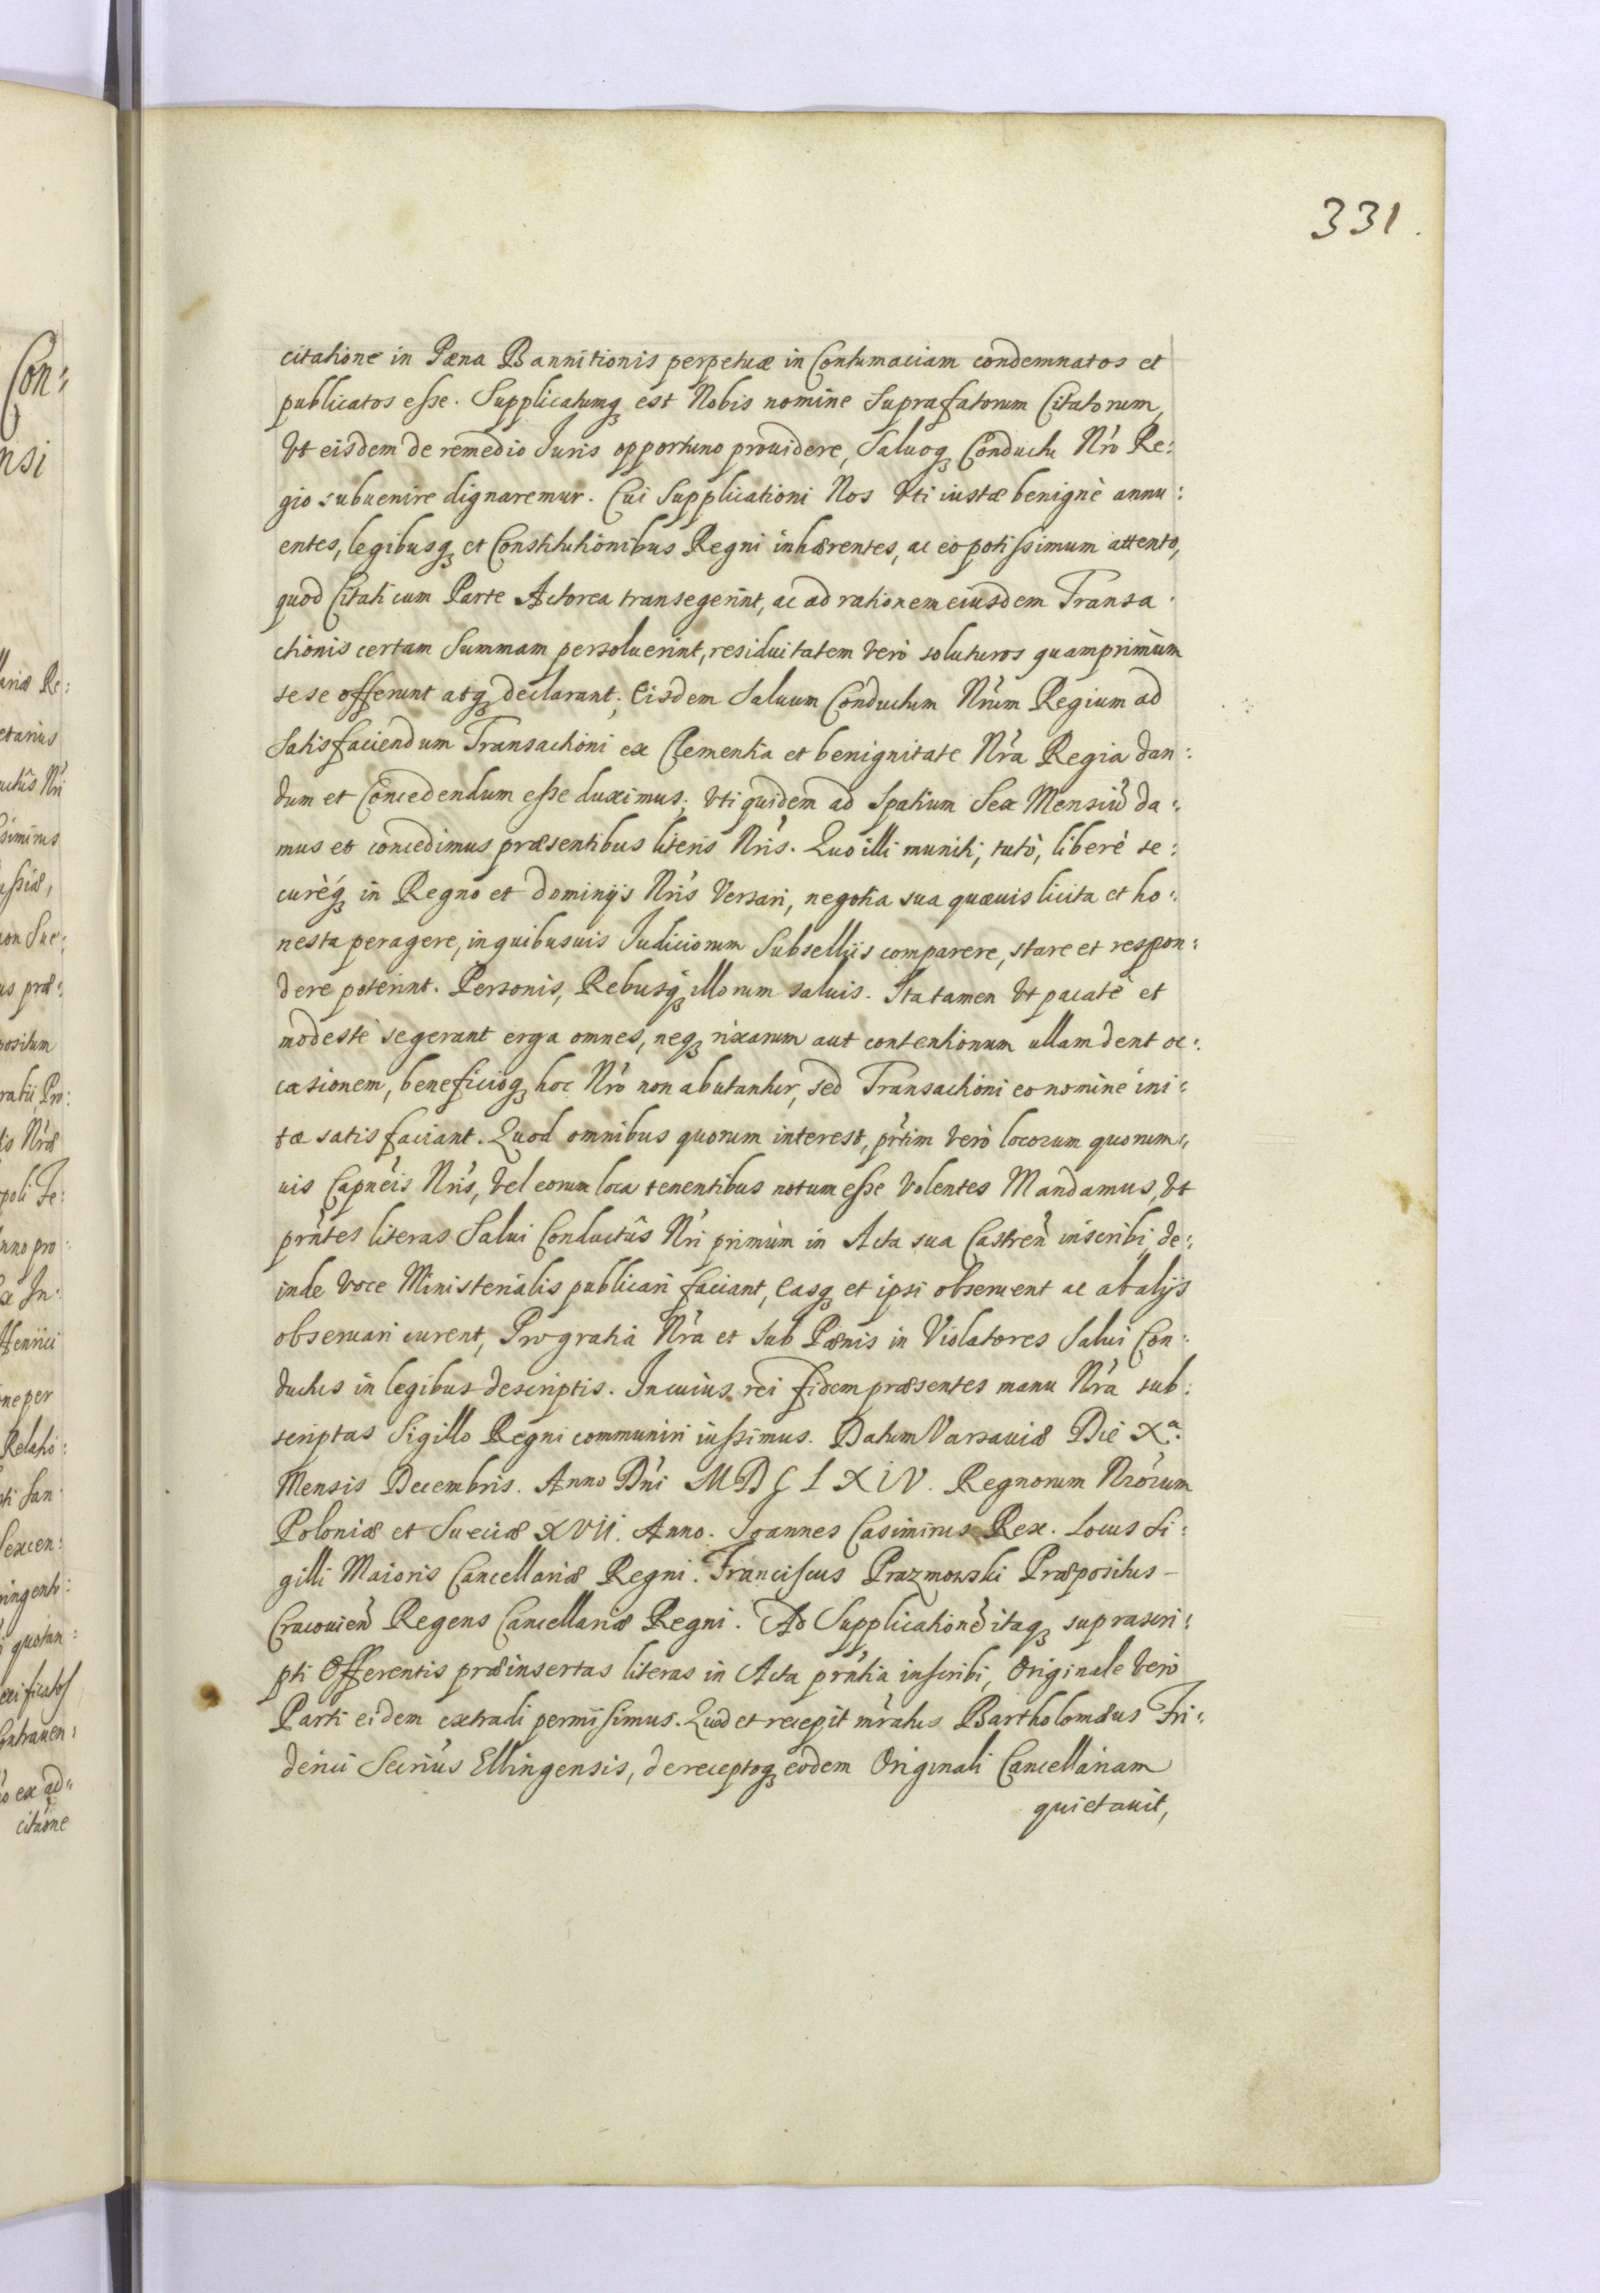 331.
citatione in Pæna Bannitionis perpetuæ in Contumaciam condemnatos et
publicatos esse. Supplicatumq́ est Nobis nomine Suprafatorum Citatorum,
Vt eisdem de remedio Iuris opportuno prouidere, Saluoq́ Conductu Nr̃o Re:
gio subuenire dignaremur. Cui Supplicationi Nos Vti iustæ benignè annu:
entes, legibusq́ et Constitutionibus Regni inhærentes, ac eo potissimum attento,
quod Citati cum Parte Actorea transegerint, ac ad rationem eiusdem Transa:
ctionis certam Summam persoluerint, residuitatem Verò soluturos quamprimùm
sese offerunt atq́ declarant; Eisdem Saluum Conductum Nr̃um Regium ad
Satisfaciendum Transactioni ex Clementia et benignitate Nr̃a Regia dan:
dum et Concedendum esse duximus; Vti quidem ad Spatium Sex Mensiũ da:
mus et concedimus præsentibus literis Nr̃is. Quo illi muniti, tutò, liberè se:
curèq́ in Regno et dominijs Nr̃is Versari, negotia sua quæuis licita et ho:
nesta peragere, in quibusuis Iudiciorum Subsellijs comparere, stare et respon:
dere poterint. Personis, Rebusq́ illorum saluis. Ita tamen Vt pacatè et
modestè se gerant erga omnes, neq́ rixarum aut contentionum ullam dent oc:
casionem, beneficioq́ hoc Nr̃o non abutantur, sed Transactioni eo nomine ini:
tæ satisfaciant. Quod omnibus quorum interest, pr̃tim Verò locorum quorum:
uis Capñeis Nr̃is, Vel eorum loca tenentibus notum esse Volentes Mandamus, Vt
pr̃ntes literas Salui Conductûs Nr̃i primùm in Acta sua Castreñ inscribi, de:
inde Voce Ministerialis publicari faciant, Easq́ et ipsi obseruent ac ab alijs
obseruari curent, Pro gratia Nr̃a et sub Pænis in Violatores Salui Con:
ductus in legibus descriptis. In cuius rei fidem præsentes manu Nr̃a sub:
scriptas Sigillo Regni communiri iussimus. Datum Varsauiæ Die Xa.
Mensis Decembris. Anno Dñi MDCLXIV. Regnorum Nr̃orum
Poloniæ et Sueciæ XVII. Anno. Ioannes Casimirus Rex. Locus Si:
gilli Maioris Cancellariæ Regni. Franciscus Prazmowski Præpositus
Cracouieñ Regens Cancellariæ Regni. Ad Supplicationẽ itaq́ suprascri:
pti Offerentis præinsertas literas in Acta pr̃ntia inscribi, Originale Verò
Parti eidem extradi permisimus. Quod et recepit mr̃atus Bartholomæus Fri:
derici Secrĩus Elbingensis, de receptoq́ eodem Originali Cancellariam
quietauit,
Con:
nsi